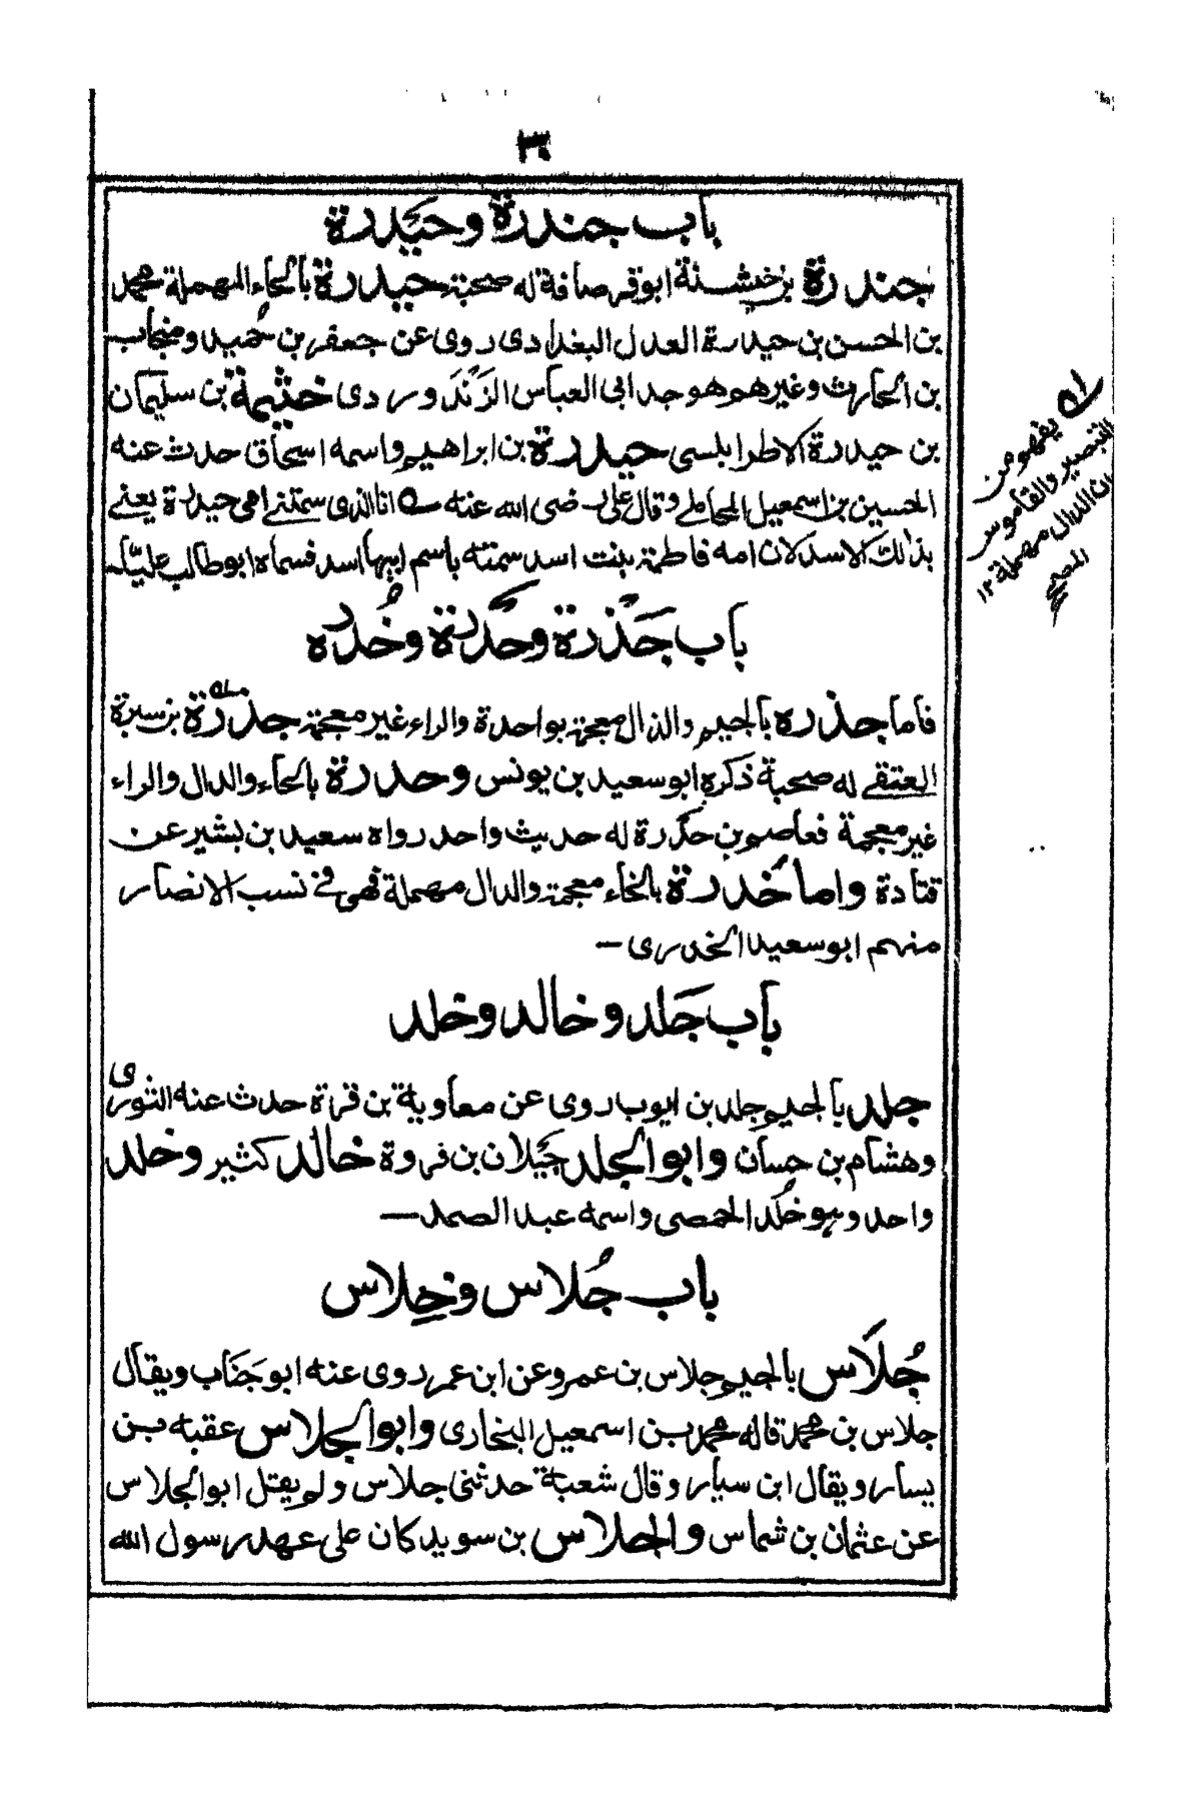 ٣٦
باب جندرة وحَيدرة
جندرة بن خيشنة ابو قرصافة له صحبة حيدرة بالحاء المهملة محمد
بن الحسن بن حيدرة العدل البغدادى روى عن جعفر بن حُميد ومنجاب
بن الحارث وغيرهم وهو جد ابى العباس الزَنْدَوردى خثيمة بن سليمان
بن حيدرة الاطرابلسى حيدرة بن ابراهيم واسمه اسحاق حدث عنه
الحسين بن اسمعيل المحاملى وقال على رضى الله عنه ؎ انا الذى سمتنى امى حيدرة يعنى
بذلك الاسد لان امه فاطمة بنت اسد سمته باسم ابيها اسد فسماه ابو طالب عليّا
باب جَذرة وحَدرة وخُدره
فاما جذره بالجيم والذال معجمة بواحدة والراء غير معجمة جذرة بن سبرة
العتقى له صحبة ذكره ابو سعيد بن يونس وحدرة بالحاء والدال والراء
غير معجمة فعاصم بن حدرة له حديث واحد رواه سعيد بن بشير عن
قتادة واما خُدرة بالخاء معجمة والدال مهملة فهى فى نسب الانصار
منهم ابو سعيد الخدرى —
باب جَلد وخالد وخلد
جلد بالجيم جلد بن ايوب روى عن معاوية بن قرة حدث عنه الثورى
وهشام بن حسان وابو الجلد جَيلان بن فروة خالد كثير وخلد
واحد وهو خُلد الحمصى واسمه عبد الصمد —
باب جُلاس وخِلاس
جُلَاس بالجيم جلاس بن عمرو عن ابن عمر روى عنه ابو جَنَاب ويقال
جلاس بن محمد قاله محمد بن اسمعيل البخارى وابو الجلاس عقبه بن
يسار ويقال ابن سيار وقال شعبة حدثنى جلاس ولم يقل ابو الجلاس
عن عثمان بن شماس والجلاس بن سويد كان على عهد رسول الله
يفهم من
التبصير والقاموس
ان الدال مهملة ١٢
المصحح